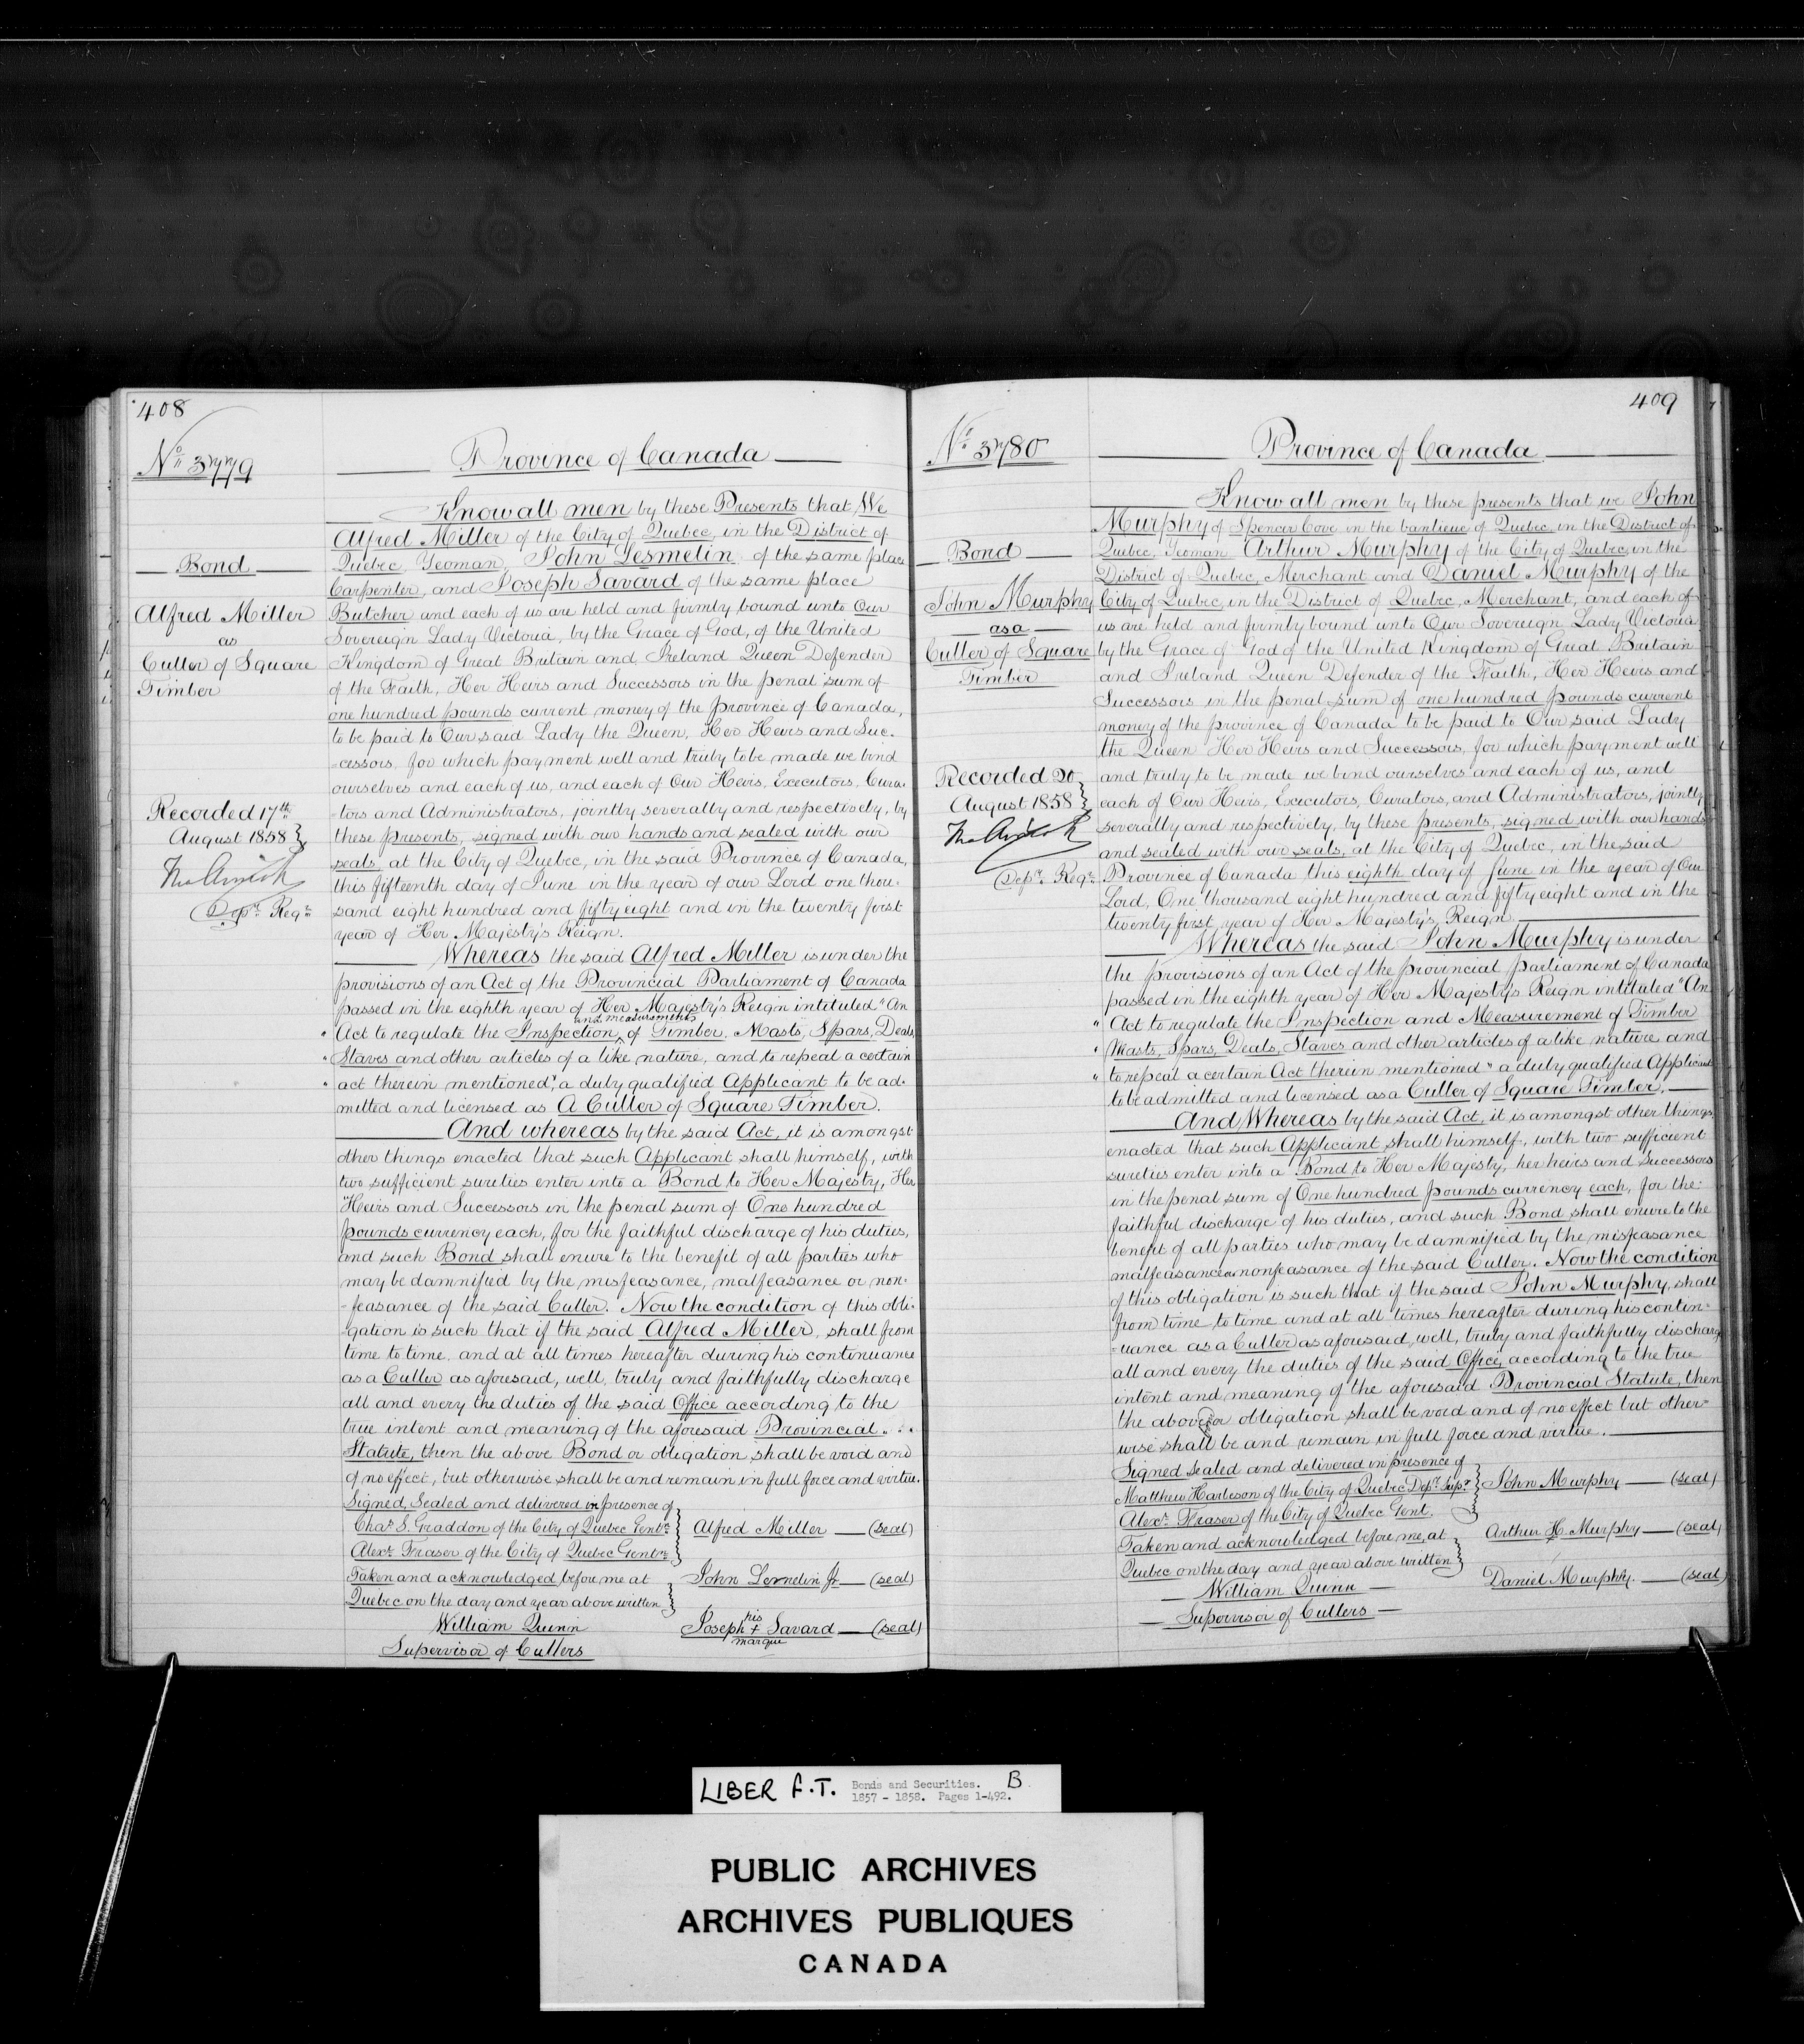 408
No 3779
Province of Canada
Know all men by these Presents that We
Alfred Miller of the City of Quebec, in the District of
Quebec, Yeoman, John Lesmelin of the same place
Carpenter, and Joseph Savard of the same place
Butcher and each of us are held and firmly bound unto Our
Sovereign Lady Victoria, by the Grace of God, of the United
Kingdom of Great Britain and Ireland Queen Defender
of the Faith, Her Heirs and Successors in the penal sum of
one hundred pounds current money of the province of Canada,
to be paid to Our said Lady the Queen, Her Heirs and Suc-
-cessors, for which payment well and truly to be made we bind
ourselves and each of us, and each of Our Heirs, Executors, Cura-
-tors and Administrators, jointly severally and respectively, by
these presents, signed with our hands and sealed with our
seals at the City of Quebec, in the said Province of Canada,
this fifteenth day of June in the year of our Lord one thou-
sand eight hundred and fifty eight and in the twenty first
year of Her Majesty's Reign.
Bond
Alfred Miller
as
Culler of Square
Timber
Recorded 17th
August 1858
Depy Regr
Whereas the said Alfred Miller is under the
provisions of an Act of the Provincial Parliament of Canada
passed in the eighth year of Her Majesty's Reign intituled "An
" Act to regulate the Inspection and measurement of Timber, Masts, Spars, Deals,
" Staves and other articles of a like nature, and to repeal a certain
" act therein mentioned", a duly qualified Applicant to be ad-
mitted and licensed as A Culler of Square Timber.
And whereas by the said Act, it is amongst
other things enacted that such Applicant shall himself, with
two sufficient sureties enter into a Bond to Her Majesty, Her
Heirs and Successors in the penal sum of One hundred
pounds currency each, for the faithful discharge of his duties,
and such Bond shall enure to the benefit of all parties who
may be damnified by the misfeasance, malfeasance or non-
-feasance of the said Culler. Now the condition of this obli-
-gation is such that if the said Alfred Miller, shall from
time to time, and at all times hereafter during his continuance
as a Culler as aforesaid, well, truly and faithfully discharge
all and every the duties of the said Office according to the
true intent and meaning of the aforesaid Provincial
Statute, then the above Bond or obligation shall be void and
of no effect, but otherwise shall be and remain in full force and virtue.
Signed, Sealed and delivered in presence of
Chas S. Graddon of the City of Quebec Gentn
Alexr Fraser of the City of Quebec Gentn
Alfred Miller (seal)
Taken and acknowledged before me at
Quebec on the day and year above written
John Lemelin Jr (seal)
William Quinn
Supervisor of Cullers
Joseph his + marque Savard (seal)
409
No 3780
Province of Canada
Know all men by these presents that we John
Murphy of Spencer Cove in the banlieue of Quebec, in the District of
Quebec, Yeoman, Arthur Murphy of the City of Quebec, in the
District of Quebec, Merchant and Daniel Murphy of the
City of Quebec, in the District of Quebec, Merchant, and each of
us are held and firmly bound unto Our Sovereign Lady Victoria
by the Grace of God of the United Kingdom of Great Britain
and Ireland Queen Defender of the Faith, Her Heirs and
Successors in the penal sum of one hundred pounds current
money of the province of Canada to be paid to Our said Lady
the Queen Her Heirs and Successors, for which payment well
and truly to be made we bind ourselves and each of us, and
each of Our Heirs, Executors, Curators, and Administrators, jointly
severally and respectively, by these presents, signed with our hands
and sealed with our seals, at the City of Quebec, in the said
Province of Canada this eighth day of June in the year of Our
Lord, One thousand eight hundred and fifty eight and in the
twenty first year of Her Majesty's Reign.
Bond
John Murphy
as a
Culler of Square
Timber
Recorded 20
August 1858
Depy Regr
Whereas the said John Murphy is under
the provisions of an Act of the provincial parliament of Canada
passed in the eighth year of Her Majesty's Reign intituled "An
" Act to regulate the Inspection and Measurement of Timber
" Masts, Spars, Deals, Staves and other articles of a like nature and
" to repeal a certain Act therein mentioned" a duly qualified Applicant
to be admitted and licensed as a Culler of Square Timber.
And Whereas by the said Act, it is amongst other things
enacted that such Applicant shall himself, with two sufficient
sureties enter into a Bond to Her Majesty, her heirs and successors
in the penal sum of One hundred pounds currency each, for the
faithful discharge of his duties, and such Bond shall enure to the
benefit of all parties who may be damnified by the misfeasance
malfeasance or nonfeasance of the said Culler. Now the condition
of this obligation is such that if the said John Murphy, shall
from time to time and at all times hereafter during his contin-
-uance as a Culler as aforesaid, well, truly and faithfully discharge
all and every the duties of the said Office, according to the true
intent and meaning of the aforesaid Provincial Statute, then
the above or obligation shall be void and of no effect but other-
wise shall be and remain in full force and virtue.
Signed sealed and delivered in presence of
Matthew Harbeson of the City of Quebec Depy Supr
Alexr Fraser of the City of Quebec Gent.
John Murphy (seal)
Taken and acknowledged before me, at
Quebec on the day and year above written
Arthur H. Murphy (seal)
William Quinn
Supervisor of Cullers
Daniel Murphy. (seal)
LIBER F.T. Bonds and Securities. B
1857 - 1858. Pages 1-492.
PUBLIC ARCHIVES
ARCHIVES PUBLIQUES
CANADA